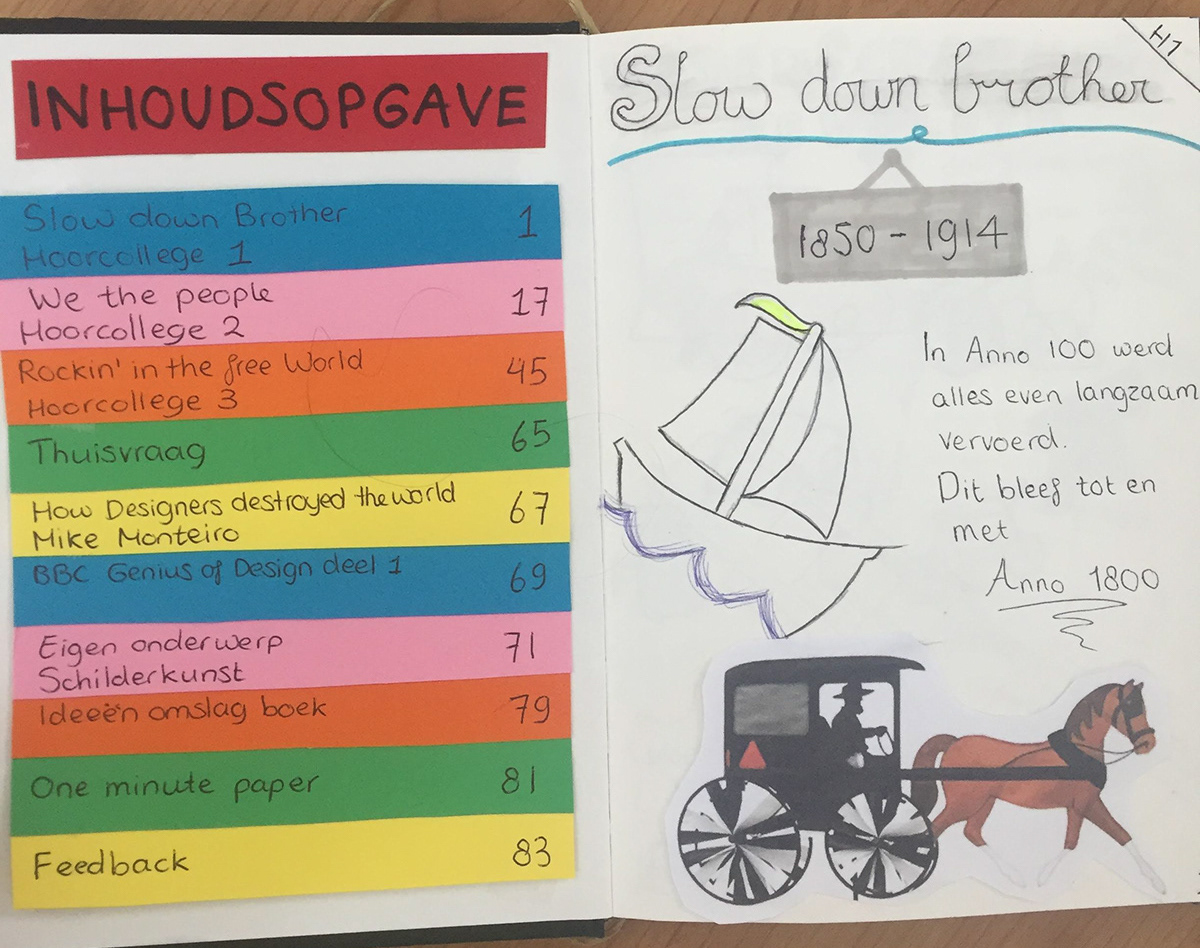 INHOUDSOPGAVE
Slow down Brother 1
Hoorcollege 1
We the people 17
Hoorcollege 2
Rockin' in the free World 45
Hoorcollege 3
Thuisvraag 65
How Designers destroyed the world 67
Mike Monteiro
BBC Genius of Design deel 1 69
Eigen onderwerp 71
Schilderkunst
Ideeën omslag boek 79
One minute paper 81
Feedback 83
H1
Slow down brother
1850 - 1914
In Anno 100 werd
alles even langzaam
vervoerd.
Dit bleef tot en
met
Anno 1800